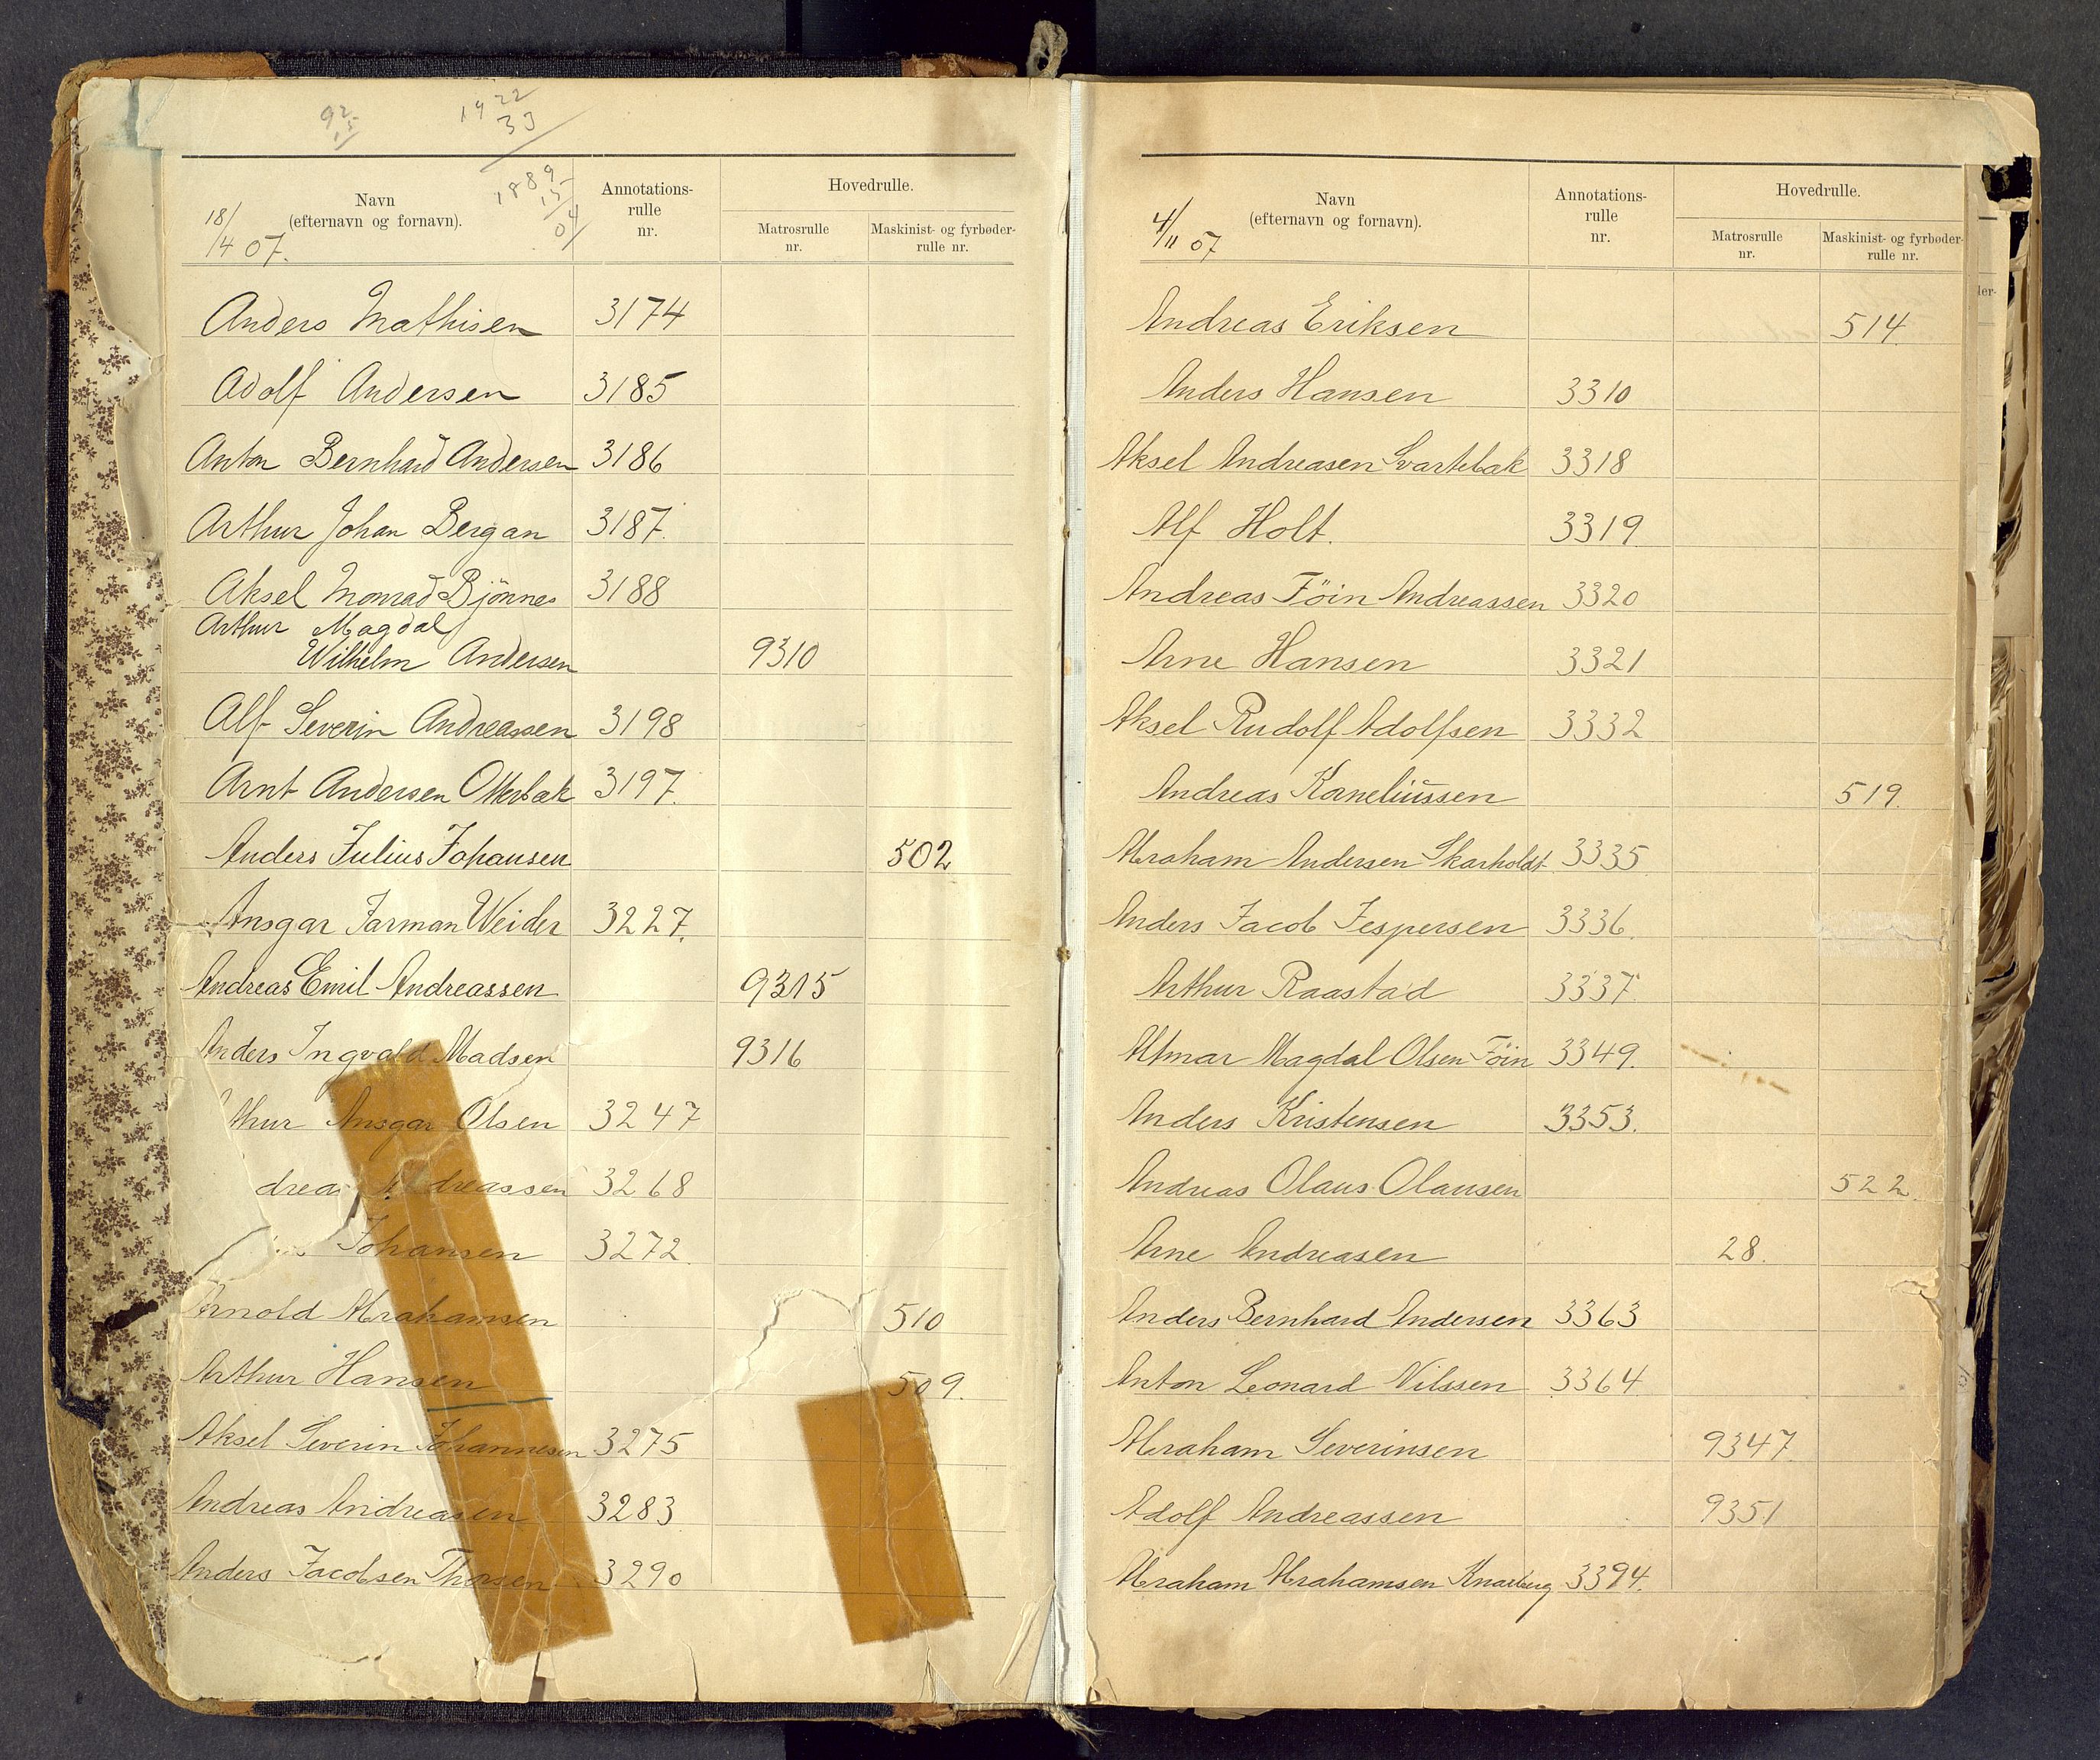 92
15
1922
33
1889
15
04
18/4 07.
Navn
(efternavn og fornavn).
Annotations-
rulle
nr.
Hovedrulle.
Matrosrulle
nr.
Maskinist- og fyrbøder-
rulle nr.
Anders Mathisen 3174
Adolf Andersen 3185
Anton Bernhard Andersen 3186
Arthur Johan Bergan 3187.
Aksel Monrad Bjönnes 3188
Arthur Magdal
Wilhelm Andersen 9310
Alf Severin Andreassen 3198
Arnt Andersen Otterbæk 3197.
Anders Julius Johansen 502
Ansgar Jarman Weider 3227.
Andreas Emil Andreassen 9315
Anders Ingvald Madsen 9316
thur Ansgar Olsen 3247
dreas Andreassen 3268
Johansen 3272.
Arnold Abrahamsen 510
Arthur Hansen 509.
Aksel Severin Johannesen 3275
Andreas Andreasen 3283
Anders Jacobsen Thorsen 3290
4/11 07
Navn
(efternavn og fornavn).
Annotations-
rulle
nr.
Hovedrulle.
Matrosrulle
nr.
Maskinist- og fyrbøder-
rulle nr.
der-
Andreas Eriksen 514.
Anders Hansen 3310
Aksel Andreasen Svartebæk 3318
Alf Holt. 3319.
Andreas Föin Andreassen 3320
Arne Hansen 3321
Aksel Rudolf Adolfsen 3332
Andreas Korneliussen 519.
Abraham Andersen Skarholdt 3335
Anders Jacob Jespersen 3336.
Arthur Raastad 3337.
Almar Magdal Olsen Föin 3349.
Anders Kristensen 3353.
Andreas Olaus Olausen 522.
Arne Andreasen 28.
Anders Bernhard Andersen 3363
Anton Leonard Nilssen 3364
Abraham Severinsen 9347.
Adolf Andreassen 9351
Abraham Abrahamsen Knarberg 3394.